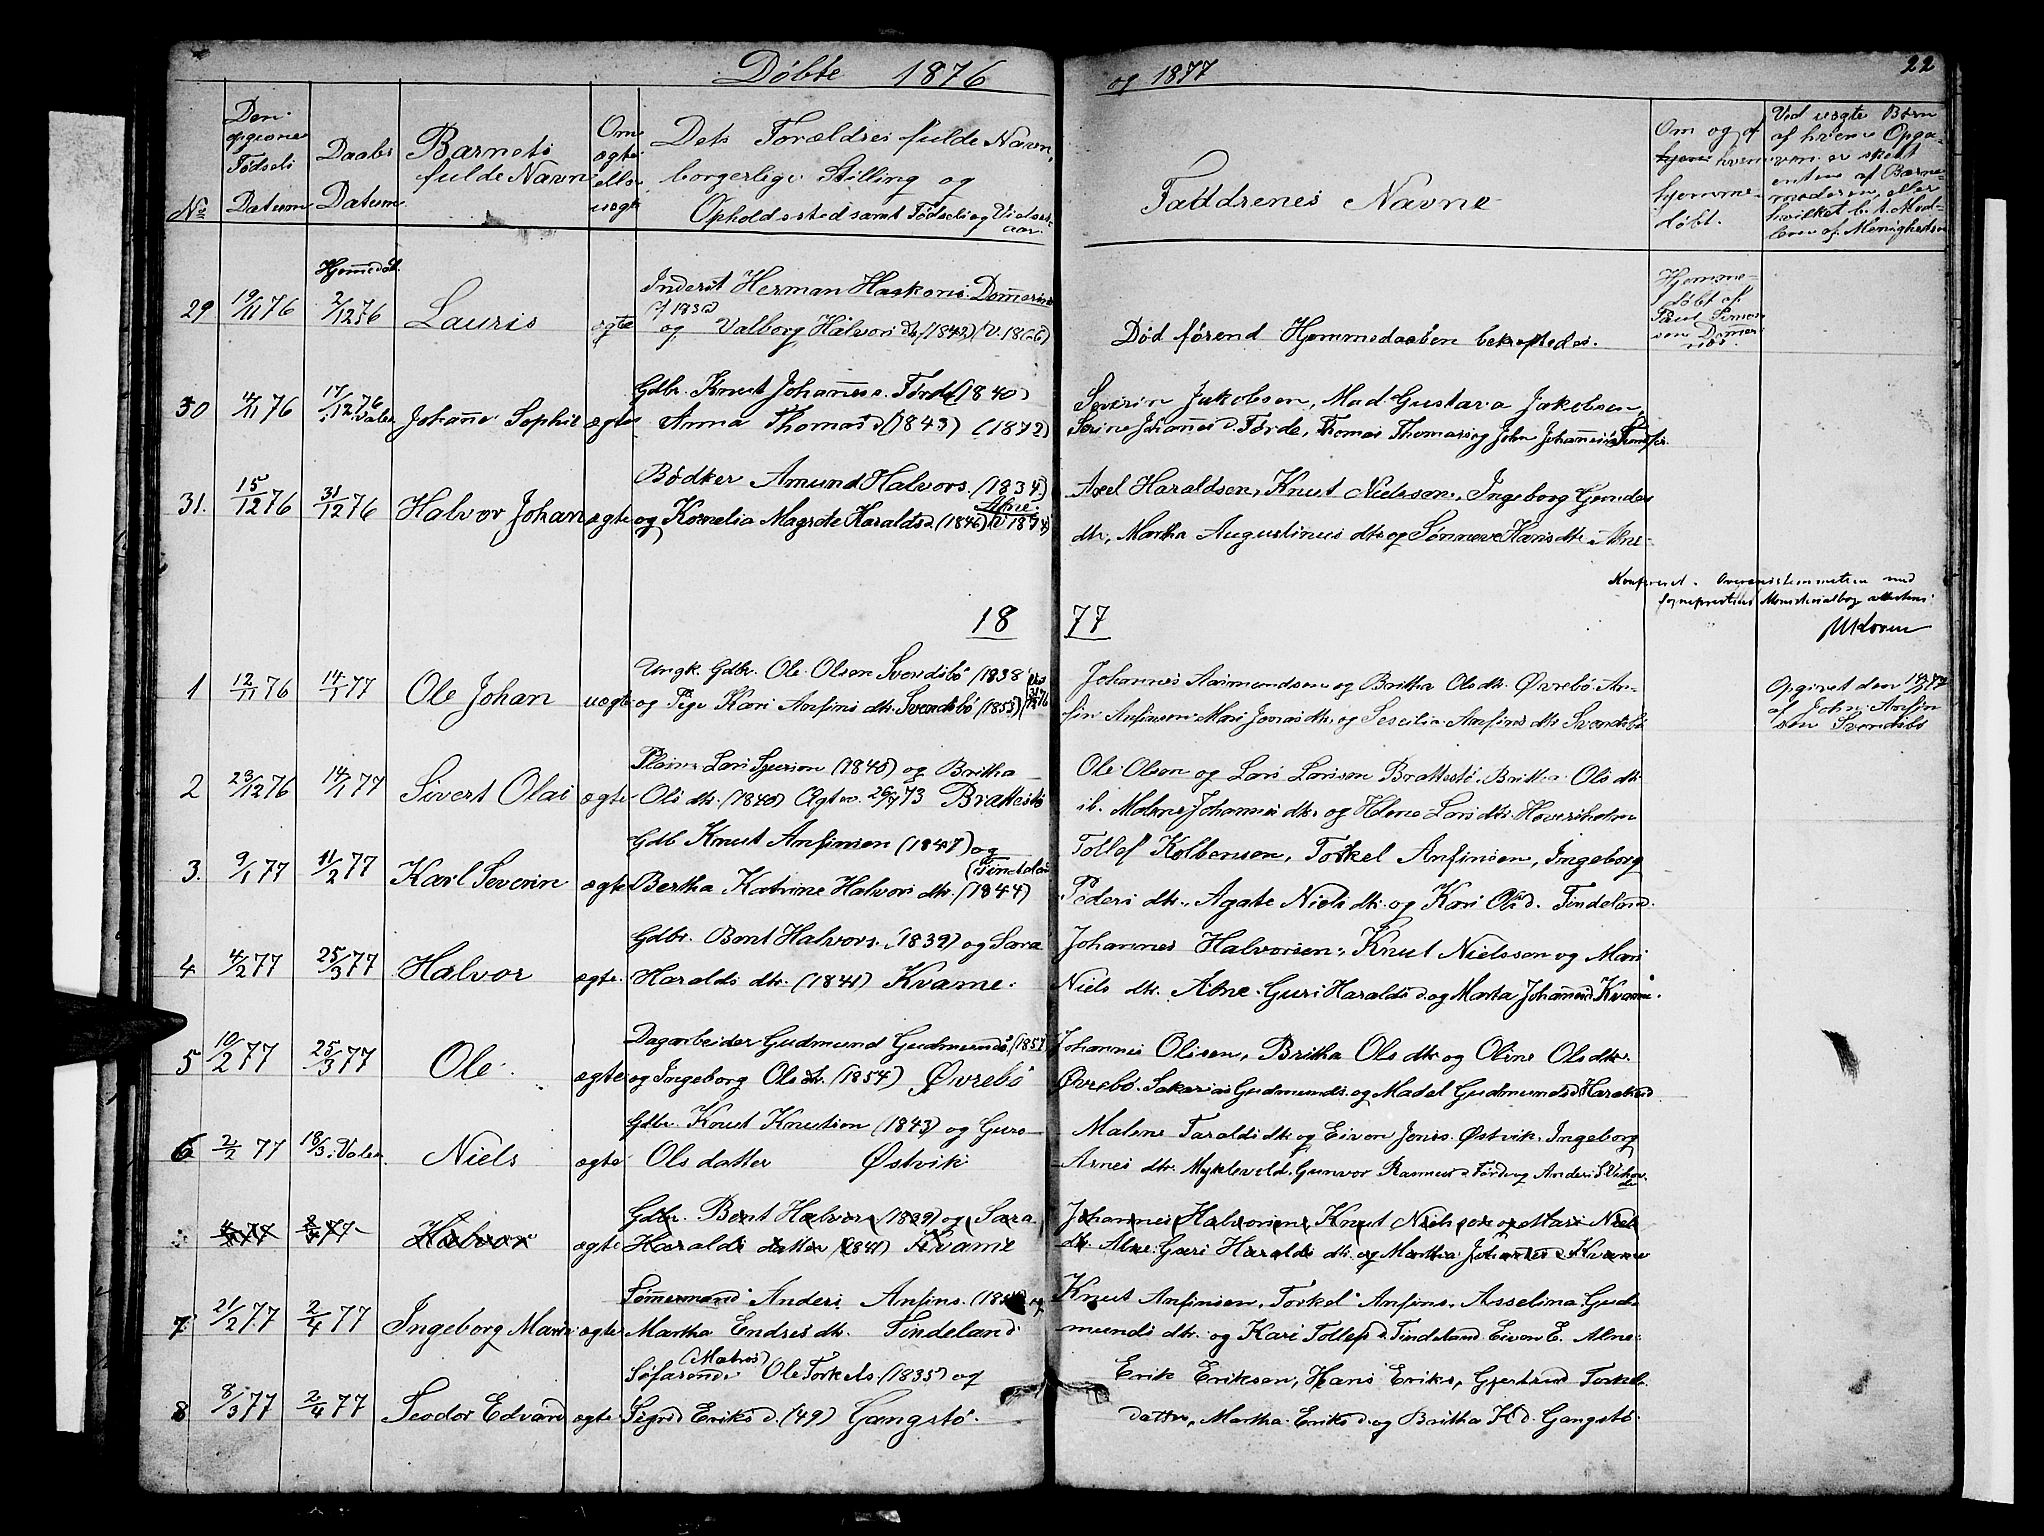 Døbte 1876
og 1877
22
No
Den
opgivne
Fødsels
Datum
Daabs
Datum
Barnets
fulde Navn
Om
ægte
eller
uægte
Dets Forældres fulde Navn,
borgerlige Stilling og
Opholdssted samt Fødsels og Vielses
aar.
Faddrenes Navne
Om og af
hvem
hjemme-
døbt.
Ved uægte Børn
af hvem Opga-
ven er skett
enten af Barne-
moderen eller
hvilket
af Menigheden
29 19/11 76
Hjemmedøbt.
2/12 76
Lauris
ægte
Inderst Herman Haakons. Dommersnes
(f 1830)
og Valborg Halvors dtr. (1842) (V. 1866)
Død førend Hjemmedaaben bekræftedes.
Hjemme-
døbt af
Paul Simon-
sen Dommers
nes
30 4/11 76 17/12 76 Valev. Johanne Sophie ægte
Gdbr. Knut Johanness. Førde (1840)
Anna Thomasd (1843) (1872)
Severin Jakobsen, Mad Gustava Jakobsen,
Serine Johannesd. Førde, Thomas Thomas. og John Johanness.
31. 15/12 76 31/12 76 Halvor Johan ægte
Bødker Amund Halvors. (1834)
Alne.
og Kornelia Magrete Haraldsd. (1846) (V 1874)
Axel Haraldsen, Knut Nielsson, Ingeborg Gunders
dtr, Martha Augustinus dtr og Sønneve Hansdtr. Alne
Konfereret. Overensstemmelsen med
Sognepræstens Ministerialbog attesteres:
1877
1 12/11 76 14/1 77 Ole Johan uægte
Ungk. Gdbr. Ole Olson Svendsbø (1838)
og Pige Kari Anfins dtr. Svendsbø (1853)
Johannes Aamundsen og Britha Olsdtr. Øvrebø. An-
fin Anfinson Mari Jonasdtr. og Sescilia Anfins dtr Svendsbø
Opgivet den 14/1 77
af John Anfin
sen Svendsbø
2 23/12 76 14/1 77 Sivert Olai ægte
Lars Sjursen (1840) og Britha
Ols dtr. (1840) Ægtev. 26/7 73 Brattestø
Ole Olson og Lars Larsson Brattestø. Britha Ols dtr
ib. Malene Johannes dtr. og Helene Lars dtr. Hoversholm
3. 9/1 77 11/2 77 Karl Severin ægte
Gdb Knut Anfinsen (1847) og
(Tindeland
Bertha Katrine Halvors dtr. (1844)
Tollef Kolbenson, Torkel Anfinsen, Ingeborg
Peders dtr., Agate Niels dtr. og Kari Olsd. Tindeland.
4 4/2 77 25/3 77 Halvor ægte.
Gdbr. Bent Halvors. (1839) og Sara
Haralds dtr. (1841) Kvame.
Johannes Halvorsen, Knut Nielsson og Mari
Niels dtr. Alne. Guri Haralds d. og Marta Johannesd Kvame.
5 10/2 77 25/3 77 Ole. ægte
Dagarbeider Gudmund Gudmunds. (1851)
og Ingeborg Ols dtr. (1854) Øvrebø
Johannes Olsen, Britha Ols dtr og Oline Ols dtr.
Øvrebø. Sakarias Gudmunds. og Madel Gudmundsd Haraland
6 2/2 77 18/3. Valev. Niels ægte
Gdbr. Knut Knutson (1843) og Guro
Ols datter Østvik
Malene Taralds dtr og Eivon Jons. Østvik. Ingeborg
Arnes dtr. Myklevold. Gunvor Rasmusd Førde og Anders
4/2 77 2/4 77 Halvor ægte
Gdbr. Bent Halvors. (1839) og Sara
Haralds datter (1841) Kvame
Johannes Halvorsen, Knut Nielsson og Mari Niels
dtr. Alne. Guri Haralds dtr. og Martha Johannesd Kvame
7. 21/2 77 2/4 77 Ingeborg Marie ægte
Tømermand Anders Anfins.
Martha Endres dtr. Tindeland
Knut Anfinsen, Torkel Anfins. Asselina Gud-
munds dtr. og Kari Tollefs d. Tindeland. Eivon E. Alne.
8 8/3 77 2/4 77 Teodor Edvard ægte
(Matros)
Søfarende Ole Torkels. (1835) og
Sigrid Eriks d. (49) Gangstø.
Erik Eriksen, Hans Eriks, Gjertrud Torkels
datter, Martha Eriks d. og Britha H d. Gangstø.